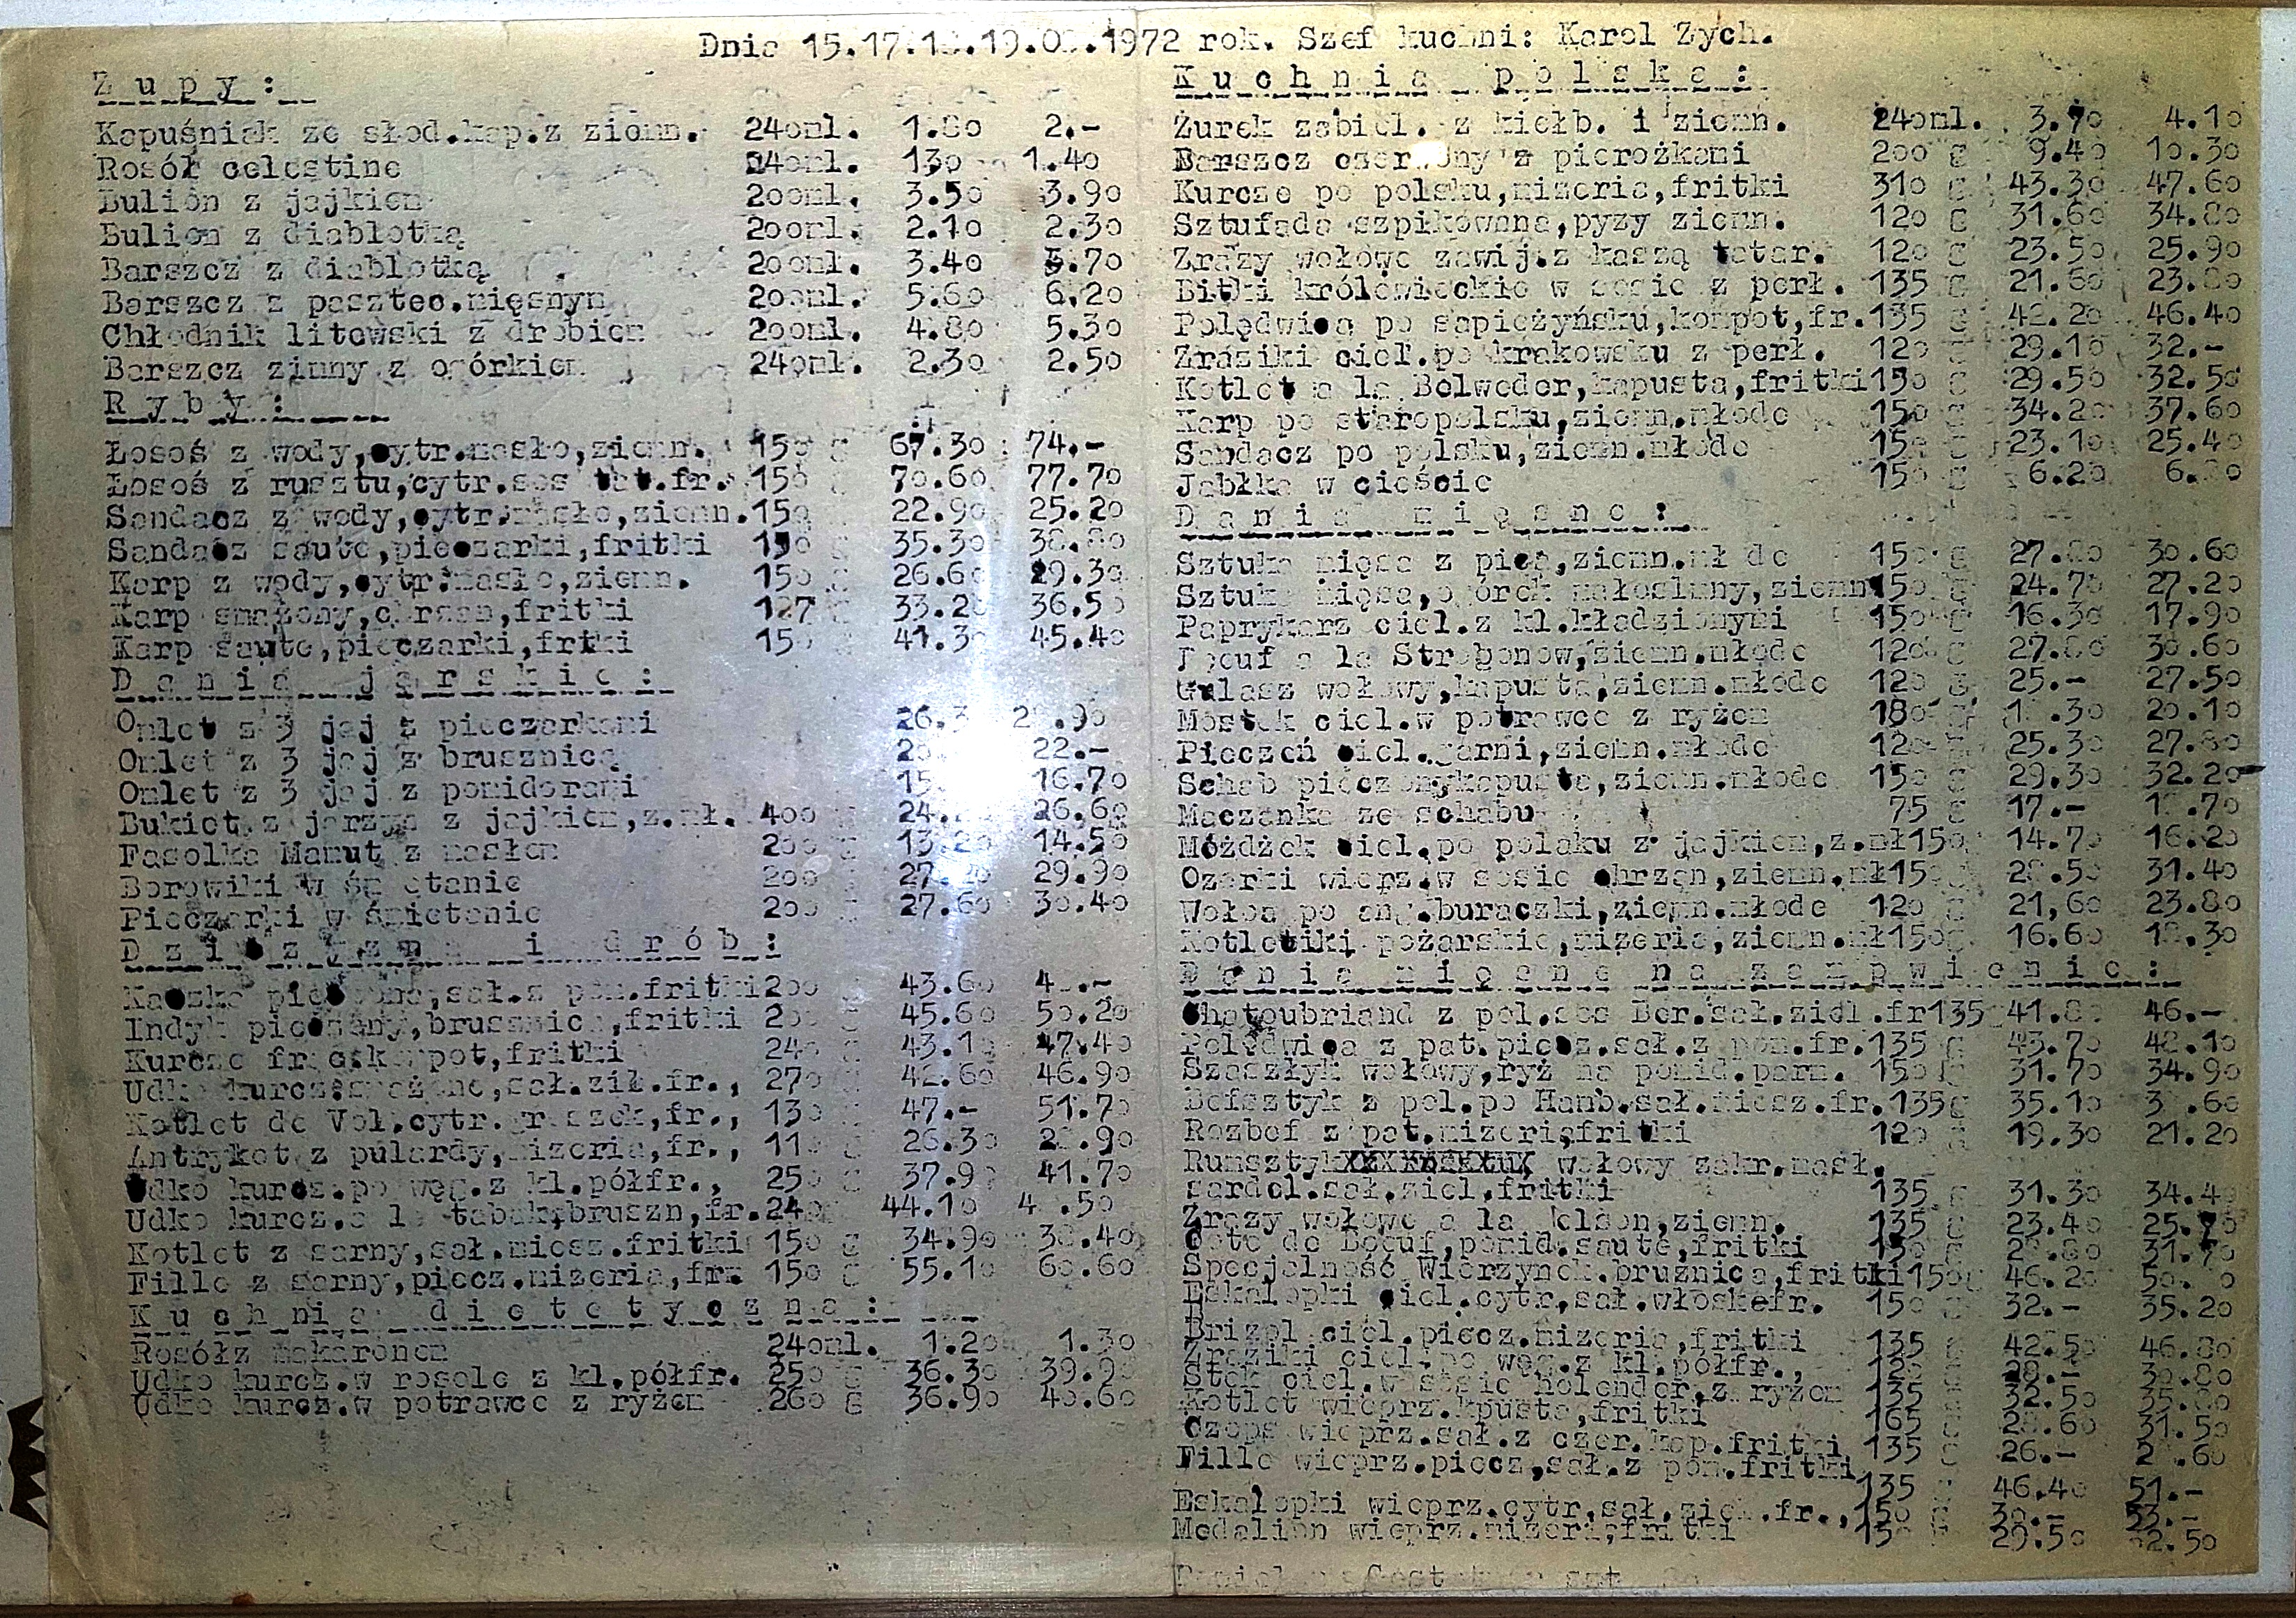 Dnia 15.17.18.19.0 .1972 rok. Szef kuchni: Karol Zych.
Z u p y :
Kapuśniak ze słod.kap.z ziemn. 24oml. 1.80 2.-
Rosół celestine 24oml. 13o 1.4o
Bulion z jajkiem 2ooml. 3.5o 3.9o
Bulion z diablotką 2ooml. 2.1o 2.3o
Barszcz z diablotką 2ooml. 3.4o 3.7o
Barszcz z pasztec.mięsnym 2ooml. 5.6o 6.2o
Chłodnik litewski z drobiem 2ooml. 4.8o 5.3o
Barszcz zimny z ogórkiem 24oml. 2.3o 2.5o
R y b y :
Łosoś z wody,cytr.masło,ziemn. 15o g 67.3o 74.-
Łosoś z rusztu,cytr.sos tat.fr. 15o g 7o.6o 77.7o
Sandacz z wody,cytr.masło,ziemn.15o 22.9o 25.2o
Sandacz saute,pieczarki,fritki 15o g 35.3o 38.8o
Karp z wody,cytr.masło,ziemn. 15o 26.6o 29.3o
Karp smażony,chrzan,fritki 127 33.2o 36.5o
Karp saute,pieczarki,fritki 15o 41.3o 45.4o
D a n i a j a r s k i e :
Omlet z 3 jaj z pieczarkami 26.3
Omlet z 3 jaj z brusznicą 22.-
Omlet z 3 jaj z pomidorami 15. 16.7o
Bukiet z jarzyn z jajkiem,z.mł. 4oo g 24. 26.6o
Fasolka Mamut z masłem 2oo g 13.2o 14.5o
Borowiki w śmietanie 2oo g 27. 29.9o
Pieczarki w śmietanie 2oo g 27.6o 3o.4o
D z i c z y z n a i d r ó b :
Kaczka pieczona,sał.z pom.fritki2oo g 43.6o
Indyk pieczony,brusznica,fritki 2oo g 45.6o 5o.2o
Kurcze frac.kompot,fritki 24o g 43.1o 47.4o
Udko kurcz.smażone,sał.ził.fr., 27o g 42.6o 46.9o
Kotlet de Vol.cytr.groszek,fr., 13o g 47.- 51.7o
Antrykot z pulardy,mizeria,fr., 11o g 26.3o 28.9o
Udko kurcz.po węg.z kl.półfr., 25o g 37.9o 41.7o
Udko kurcz.a la tabaka,bruszn,fr.24o 44.1o 4 .5o
Kotlet z sarny,sał.miesz.fritki 15o g 34.9o 38.4o
Fille z sarny,piecz.mizeria,frx 15o g 55.1o 6o.6o
K u c h n i a d i e t e t y c z n a :
Rosółz makaronem 24oml. 1.2o 1.3o
Udko kurcz.w rosole z kl.półfr. 25o g 36.3o 39.9o
Udko kurcz.w potrawce z ryżem 26o g 36.9o 4o.6o
K u c h n i a p o l s k a :
Żurek zabiel. z kiełb. i ziemn. 24oml. 3.7o 4.1o
Barszcz czerwony z pierożkami 2oo g 9.4o 1o.3o
Kurcze po polsku,mizeria,fritki 31o g 43.3o 47.6o
Sztufada szpikowana,pyzy ziemn. 12o g 31.6o 34.8o
Zrazy wołowe zawij.z kaszą tatar. 12o g 23.5o 25.9o
Bitki królewieckie w sosie z perł. 135 g 21.6o 23.8o
Polędwica po sapieżyńsku,kompot,fr.135 g 42.2o 46.4o
Zraziki ciel.po krakowsku z perł. 12o g 29.1o 32.-
Kotlet a la Belweder,kapusta,fritki15o g 29.5o 32.5o
Karp po staropolsku,ziemn.młode 15o g 34.2o 37.6o
Sandacz po polsku,ziemn.młode 15o g 23.1o 25.4o
Jabłka w cieście 15o g 6.2o 6.8o
D a n i a m i ę s n e :
Sztuka mięsa z pieą,ziemn.mł de 15o g 27.8o 3o.6o
Sztuka mięsa,ogórek małosolny,ziemn15o g 24.7o 27.2o
Paprykarz ciel.z kl.kładzionymi 15o g 16.3o 17.9o
Boeuf a la Strogonow,ziemn.młode 12o g 27.8o 3o.6o
Gulasz wołowy,kapusta,ziemn.młode 12o g 25.- 27.5o
Mostek ciel.w potrawce z ryżem 18o g 1 .3o 2o.1o
Pieczeń ciel.garni,ziemn.młode 12o 25.3o 27.8o
Schab pieczonykapusta,ziemn.młode 15o g 29.3o 32.2o
Maczanka ze schabu 75 g 17.- 1 .7o
Móżdżek ciel.po polsku z jajkiem,z.mł15o 14.7o 16.2o
Ozorki wieprz.w sosie chrzan,ziemn.mł15o 28.5o 31.4o
Wołow po ang.buraczki,ziemn.młode 12o g 21,6o 23.8o
Kotleciki pożarskie,mizeria,ziemn.mł15o 16.6o 18.3o
D a n i a m i ę s n e n a z a m ó w i e n i e :
Chateubriand z pol.sos Ber.sał.ziel.fr135 41.8o 46.-
Polędwica z pat.piecz.sał.z pom.fr.135 g 43.7o 48.1o
Szaszłyk wołowy,ryż na pomid.parm. 15o g 31.7o 34.9o
Befsztyk z pol.po Hamb.sał.miesz.fr.135g 35.1o 3 .6o
Rozbef z pat.mizeria,fritki 12o g 19.3o 21.2o
Rumsztyk wołowy zakr.masł.
sardel.sał.ziel.fritki 135 g 31.3o 34.4o
Zrazy wołowe a la Nelson,ziemn. 135 g 23.4o 25.7o
Cote de Boeuf,pomid.saute,fritki 13o g 28.8o 31.7o
Specjalność Wierzynek.bruźnica,fritki15o 46.2o 5o. o
Eskalopki ciel.cytr,sał.włoskefr. 15o g 32.- 35.2o
Brizol ciel.piecz.mizeria,fritki 135 g 42.5o 46.8o
Zraziki ciel.po węg.z kl.półfr., 12o g 28.- 3o.8o
Stek ciel.w sosie holender.z ryżem 135 g 32.5o 35.8o
Kotlet wieprz.kpusta,fritki 165 g 28.6o 31.5o
Czops wieprz.sał.z czer.kap.fritki 135 g 26.- 2 .6o
Fille wieprz.piecz,sał.z pom.fritki
135 46.4o 51.-
Eskalopki wieprz.cytr.sał.ziel.fr.,15o 3o.- 33.-
Medalion wieprz.mizeria,fritki 15o 29.5o 32.5o